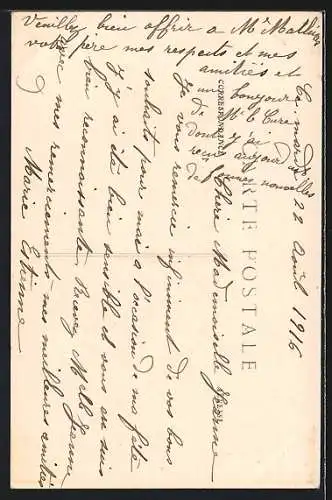 Ce mardi 22 Août 1916
CARTE POSTALE
CORRESPONDANCE
Chère Mademoiselle Jeanne
Je vous remercie infiniment de vos bons
souhaits pour moi à l'occasion de ma fête
j'y ai été bien sensible et vous en suis
bien reconnaissante. Recevez Melle Jeanne
avec mes remerciements mes meilleures amitiés
Marie Etienne
Veuillez bien offrir a Mr
votre père mes respects et mes
amitiés et
un bonjour
de Mr le Curé
dont j'ai
reçu aujourd'hui
de bonnes nouvelles